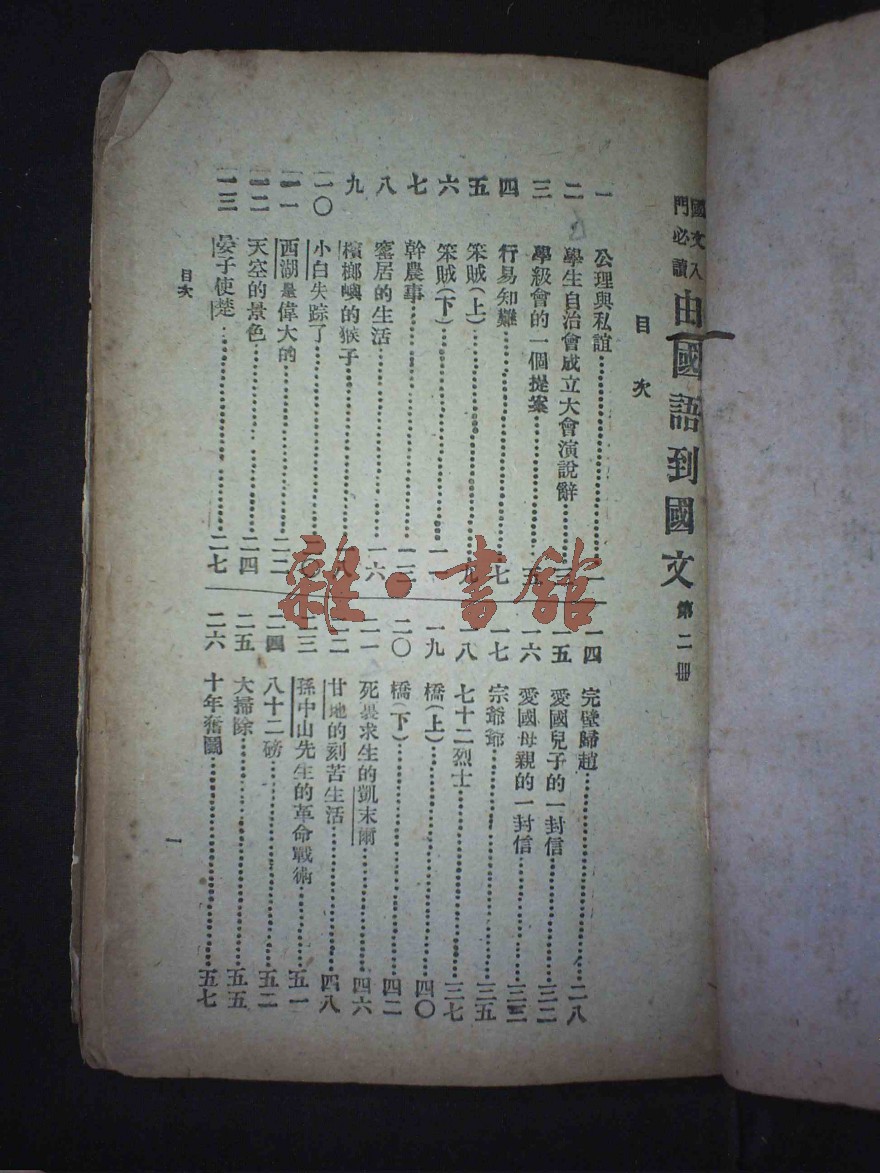 國文入門必讀 由國語到國文 第二冊
目次
一 公理與私誼 一
二 學生自治會成立大會演說辭
三 學級會的一個提案 五
四 行易知難 七
五 笨賊(上) 九
六 笨賊(下) 一一
七 幹農事 一三
八 窰居的生活 一六
九 檳榔嶼的猴子 一八
一〇 小白失踪了 二〇
一一 西湖是偉大的 二二
一二 天空的景色 二四
一三 晏子使楚 二七
一四 完壁歸趙 二八
一五 愛國兒子的一封信 三二
一六 愛國母親的一封信 三三
一七 宗爺爺 三五
一八 七十二烈士 三七
一九 橋(上) 四〇
二〇 橋(下) 四二
二一 死裏求生的凱末爾 四六
二二 甘地的刻苦生活 四八
二三 孫中山先生的革命戰術 五一
二四 八十二磅 五二
二五 大掃除 五五
二六 十年奮鬭 五七
目次
一
雜·書館